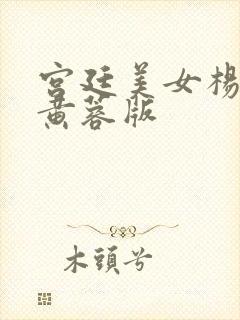 宫廷美女楊
黄蓉版
木頭兮